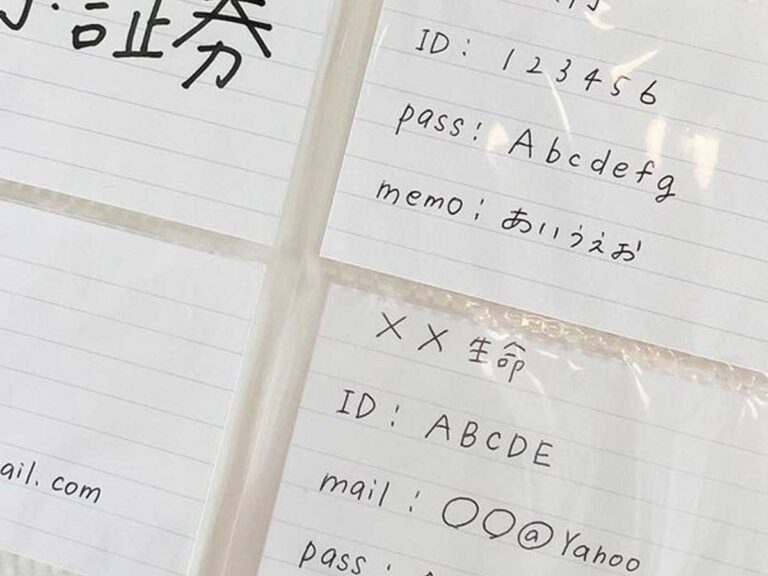 証券
ail.com
ID: 123456
pass: Abcdefg
memo: あいうえお
××生命
ID: ABCDE
mail: ○○@Yahoo
pass: